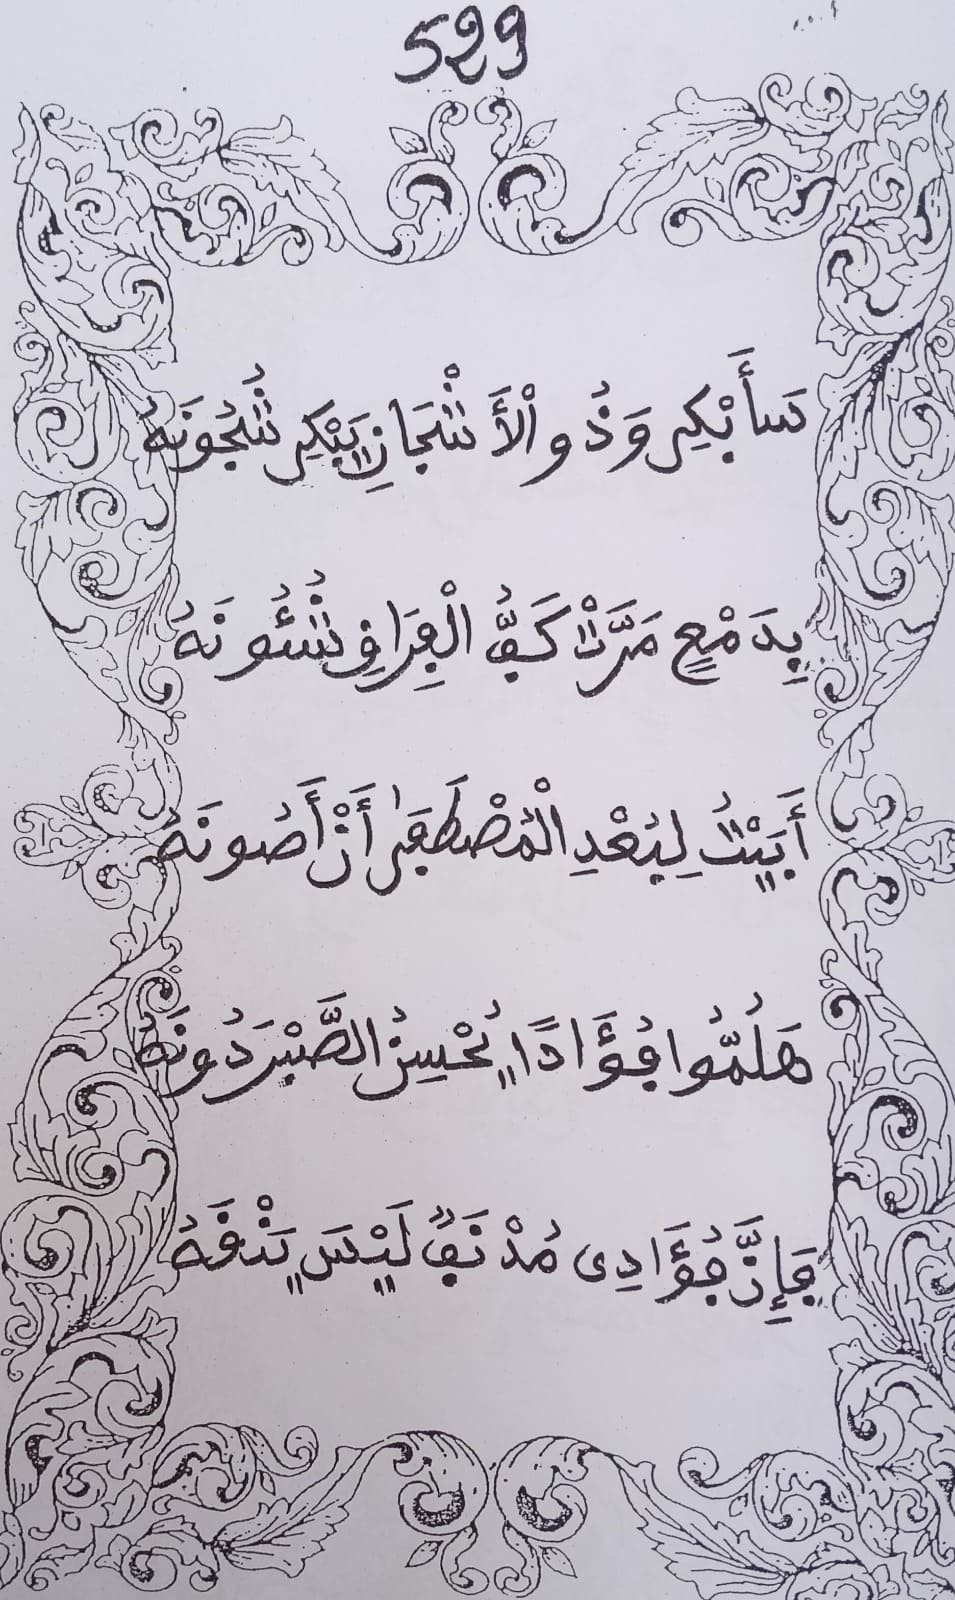 529
سَأَبْكِي وَذُو الْأَشْجَانِ يَبْكِي شُجُونَهُ
بِدَمْعٍ مَرَتْ كَفُّ الْفِرَاقِ شُئُونَهُ
أَبَيْتُ لِبُعْدِ الْمُصْطَفَى أَنْ أَصُونَهُ
هَلُمُّوا فُؤَادًا يُحْسِنُ الصَّبْرَ دُونَهُ
فَإِنَّ فُؤَادِي مُدْنَفٌ لَيْسَ يَنْقَهُ